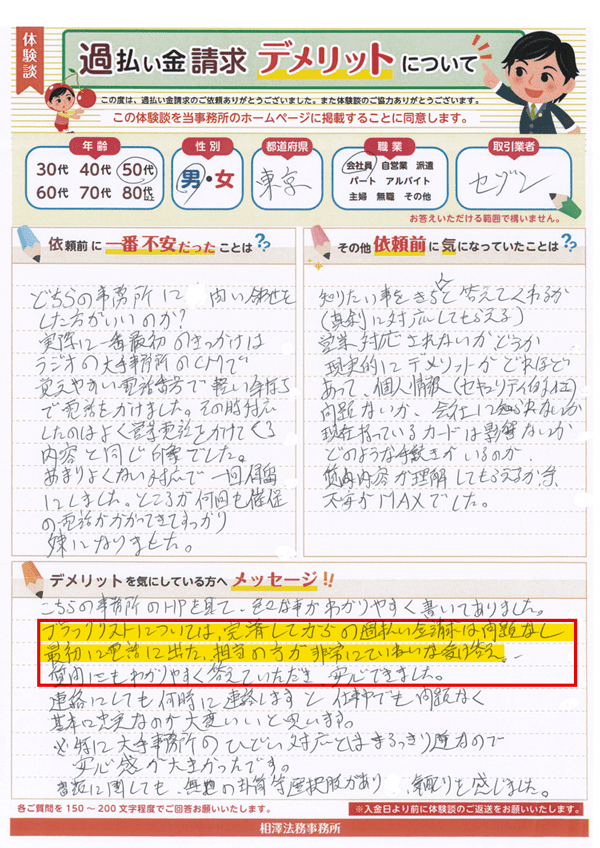 体験談
過払い金請求 デメリットについて
この度は、過払い金請求のご依頼ありがとうございました。また体験談のご協力ありがとうございます。
この体験談を当事務所のホームページに掲載することに同意します。
年齢
30代 40代 50代
60代 70代 80代
性別
男・女
都道府県
東京
職業
会社員 自営業 派遣
パート アルバイト
主婦 無職 その他
取引業者
セゾン
お答えいただける範囲で構いません。
依頼前に一番不安だったことは??
どちらの事務所に 問い合わせを
した方がいいのか?
実際に一番最初のきっかけは
ラジオの大手事務所のCMで
覚えやすい電話番号で軽い気持ち
で電話をかけました。その時対応
したのはよく営業電話をかけてくる
内容と同じ印象でした。
あまりよくない対応で一回保留
にしました。ところが何回も催促
の電話がかかってきてすっかり
嫌になりました。
その他依頼前に気になっていたことは??
知りたい事をきちっと答えてくれるか
(真剣に対応してもらえる)
営業対応されないかどうか
現実的にデメリットがどれほど
あって、個人情報(セキュリティ的
問題ないか、会社に知られないか
現在持っているカードは影響ないか
どのような手続きがいるのか、
質問内容が理解してもらえるか
不安がMAXでした。
デメリットを気にしている方へメッセージ!!
こちらの事務所のHPを見て、色々な事がわかりやすく書いてありました。
ブラックリストについては、完済してからの過払い金請求は問題なし
最初に電話に出た、担当の方が非常にていねいな受け答え。
質問にもわかりやすく答えていただき、安心できました。
連絡にしても何時に連絡しますと仕事中でも問題なく
基本に忠実なのが大変いいと思います。
※特に大手事務所のひどい対応とはまるっきり逆なので
安心感が大きかったです。
書類に関しても、無地の封筒等選択肢があり 気配りを感じました。
各ご質問を150～200文字程度でご回答お願いいたします。
※入金日より前に体験談のご返送をお願いいたします。
相澤法務事務所